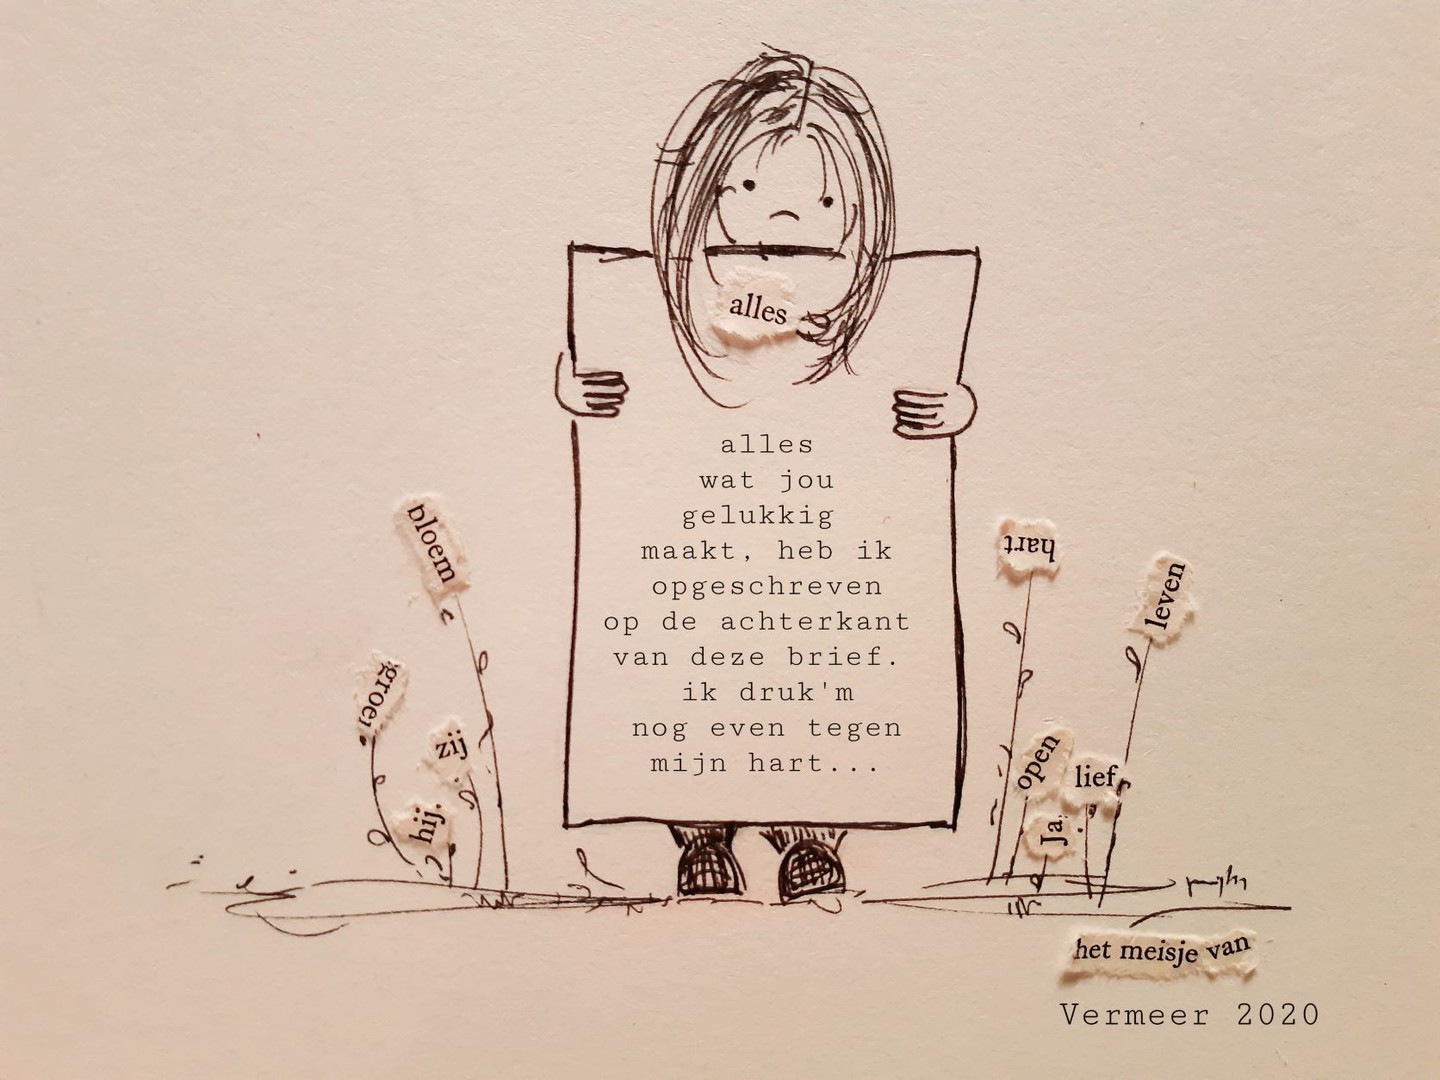 alles
alles
wat jou
gelukkig
maakt, heb ik
opgeschreven
op de achterkant
van deze brief.
ik druk'm
nog even tegen
mijn hart...
bloem
groei
zij
hij.
hart
leven
open
lief,
Ja,
het meisje van
Vermeer 2020